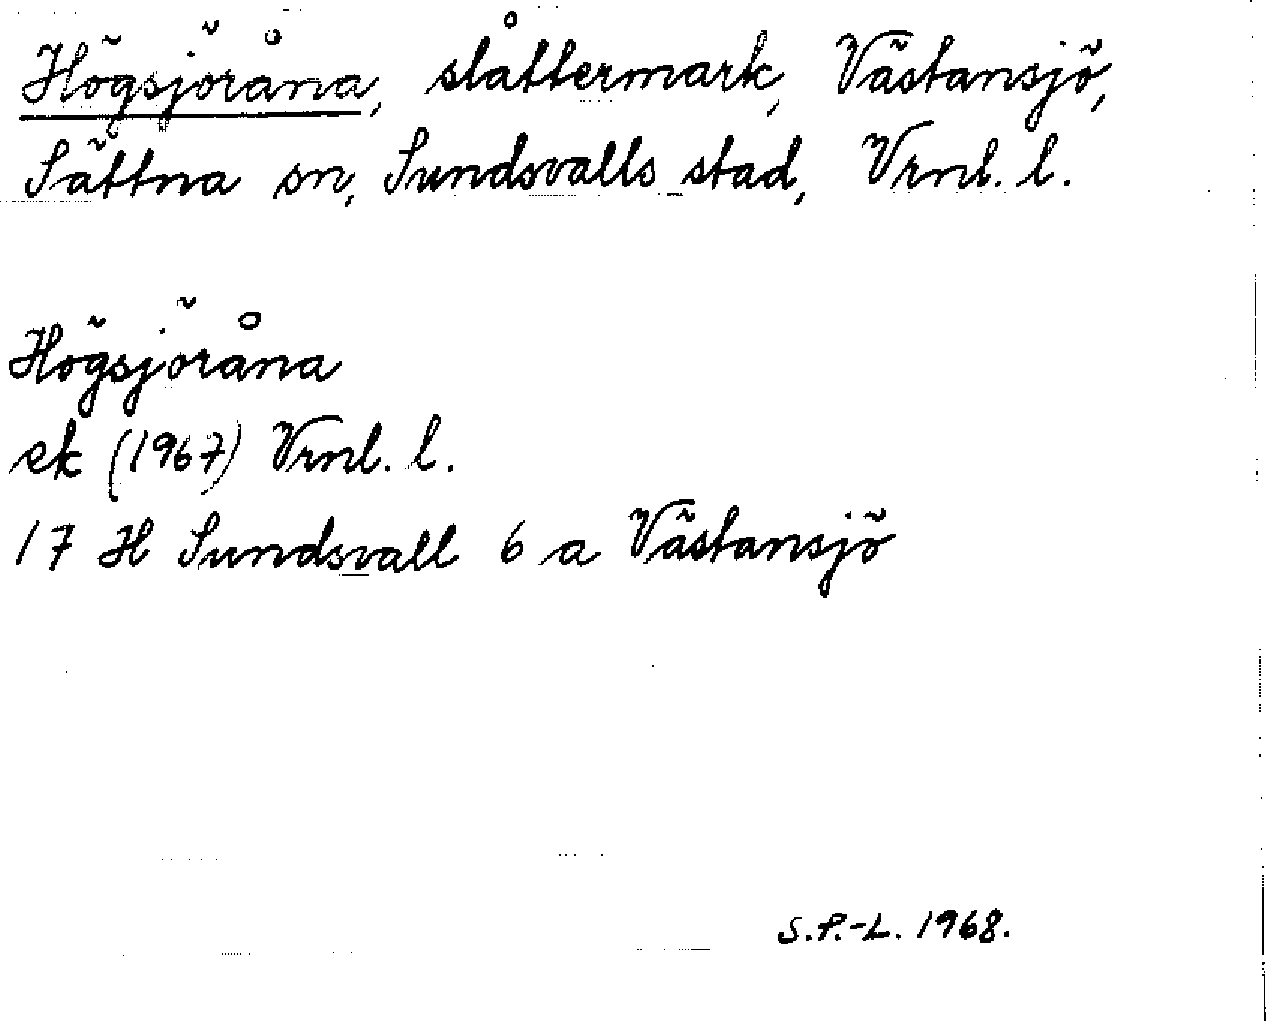 Högsjöråna, slåttermark, Västansjö,
Sättna sn, Sundsvalls stad, Vrnl. l.
Högsjöråna
ek (1967) Vrnl. l.
17 H Sundsvall 6 a Västansjö
S.P.-L. 1968.